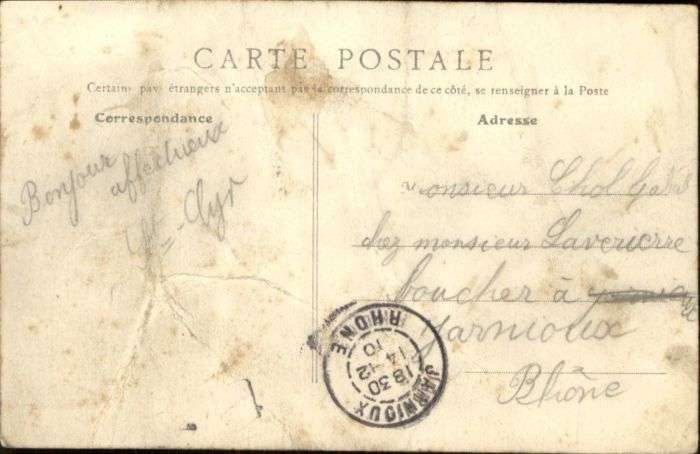 CARTE POSTALE
Certains pays étrangers n'acceptant pas la correspondance de ce côté, se renseigner à la Poste
Correspondance
Adresse
Bonjour
affectueux
Clyr
Monsieur Chol
chez monsieur Laverrerre
boucher à
Jarnioux
Rhône
JARNIOUX
18 30
14-12
10
RHÔNE